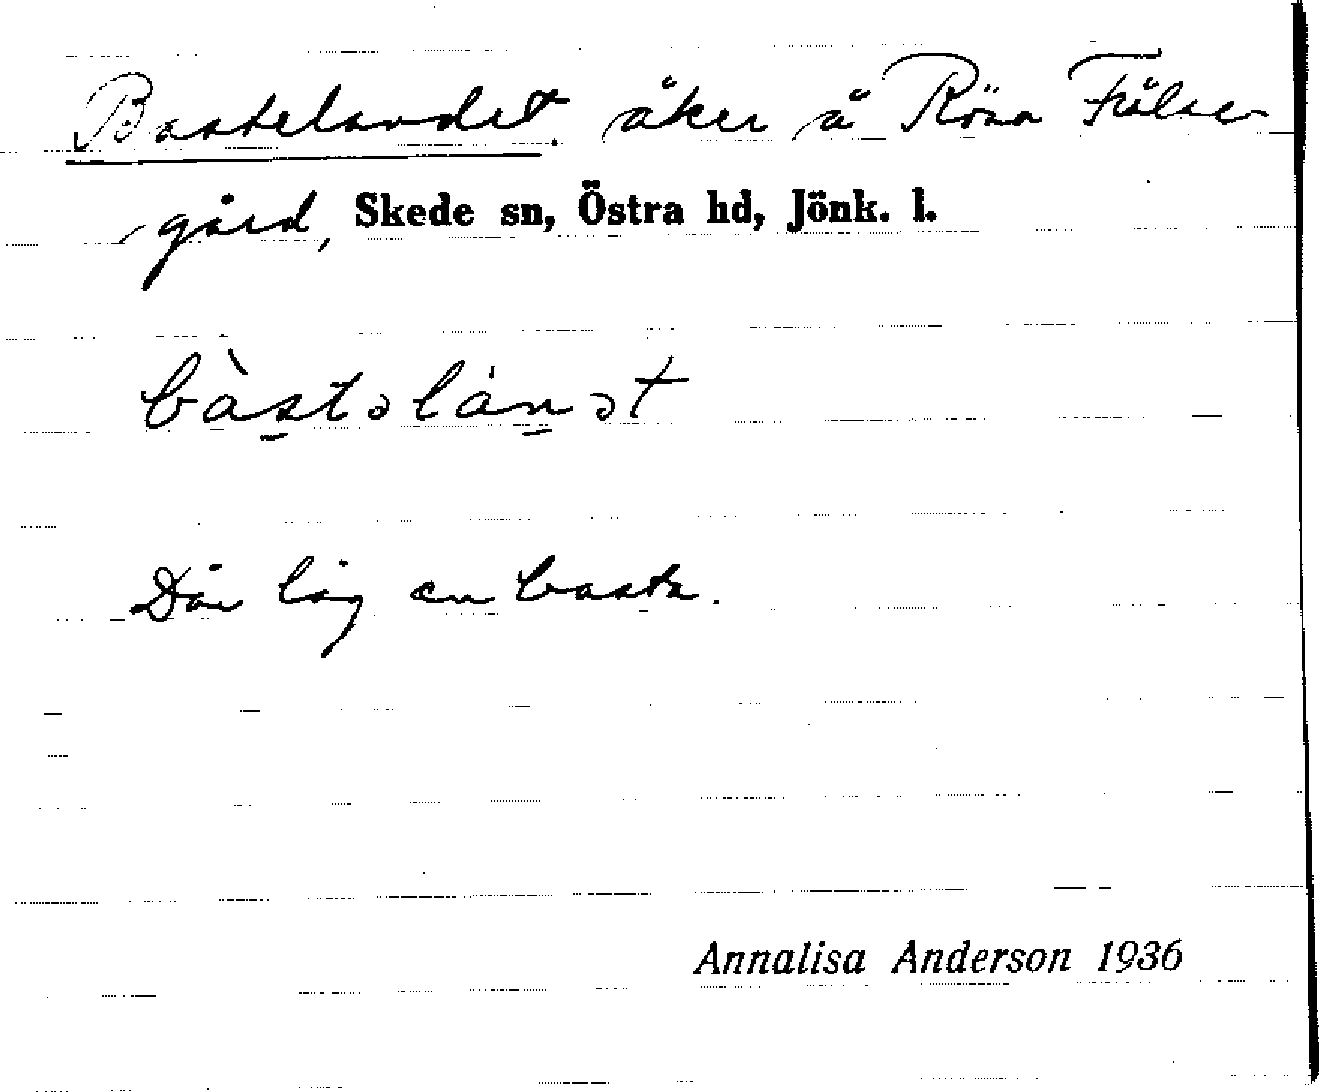 Bastelandet. åker å Röna Frälse-
gård, Skede sn, Östra hd, Jönk. l.
bàstəlánət
Där låg en basta.
Annalisa Anderson 1936